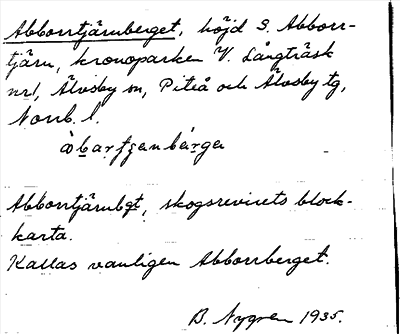 Abborrtjärnberget, höjd S. Abborr-
tjärn, kronoparken V. Långträsk
nr1, Älvsby sn, Piteå och Älvsby tg,
Norrb. l.
àbar̥tʃenbárge
Abborrtjärnbgt, skogsrevirets block-
karta.
Kallas vanligen Abborrberget.
B. Nygren 1935.